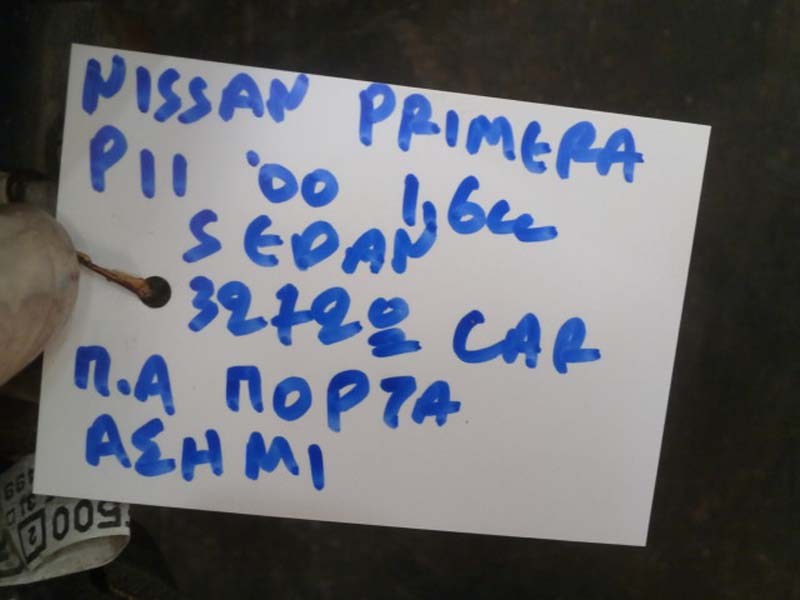 NISSAN PRIMERA
P11 '00 1,6cc
SEDAN
32720 CAR
Π.Α ΠΟΡΤΑ
ΑΣΗΜΙ
500
2